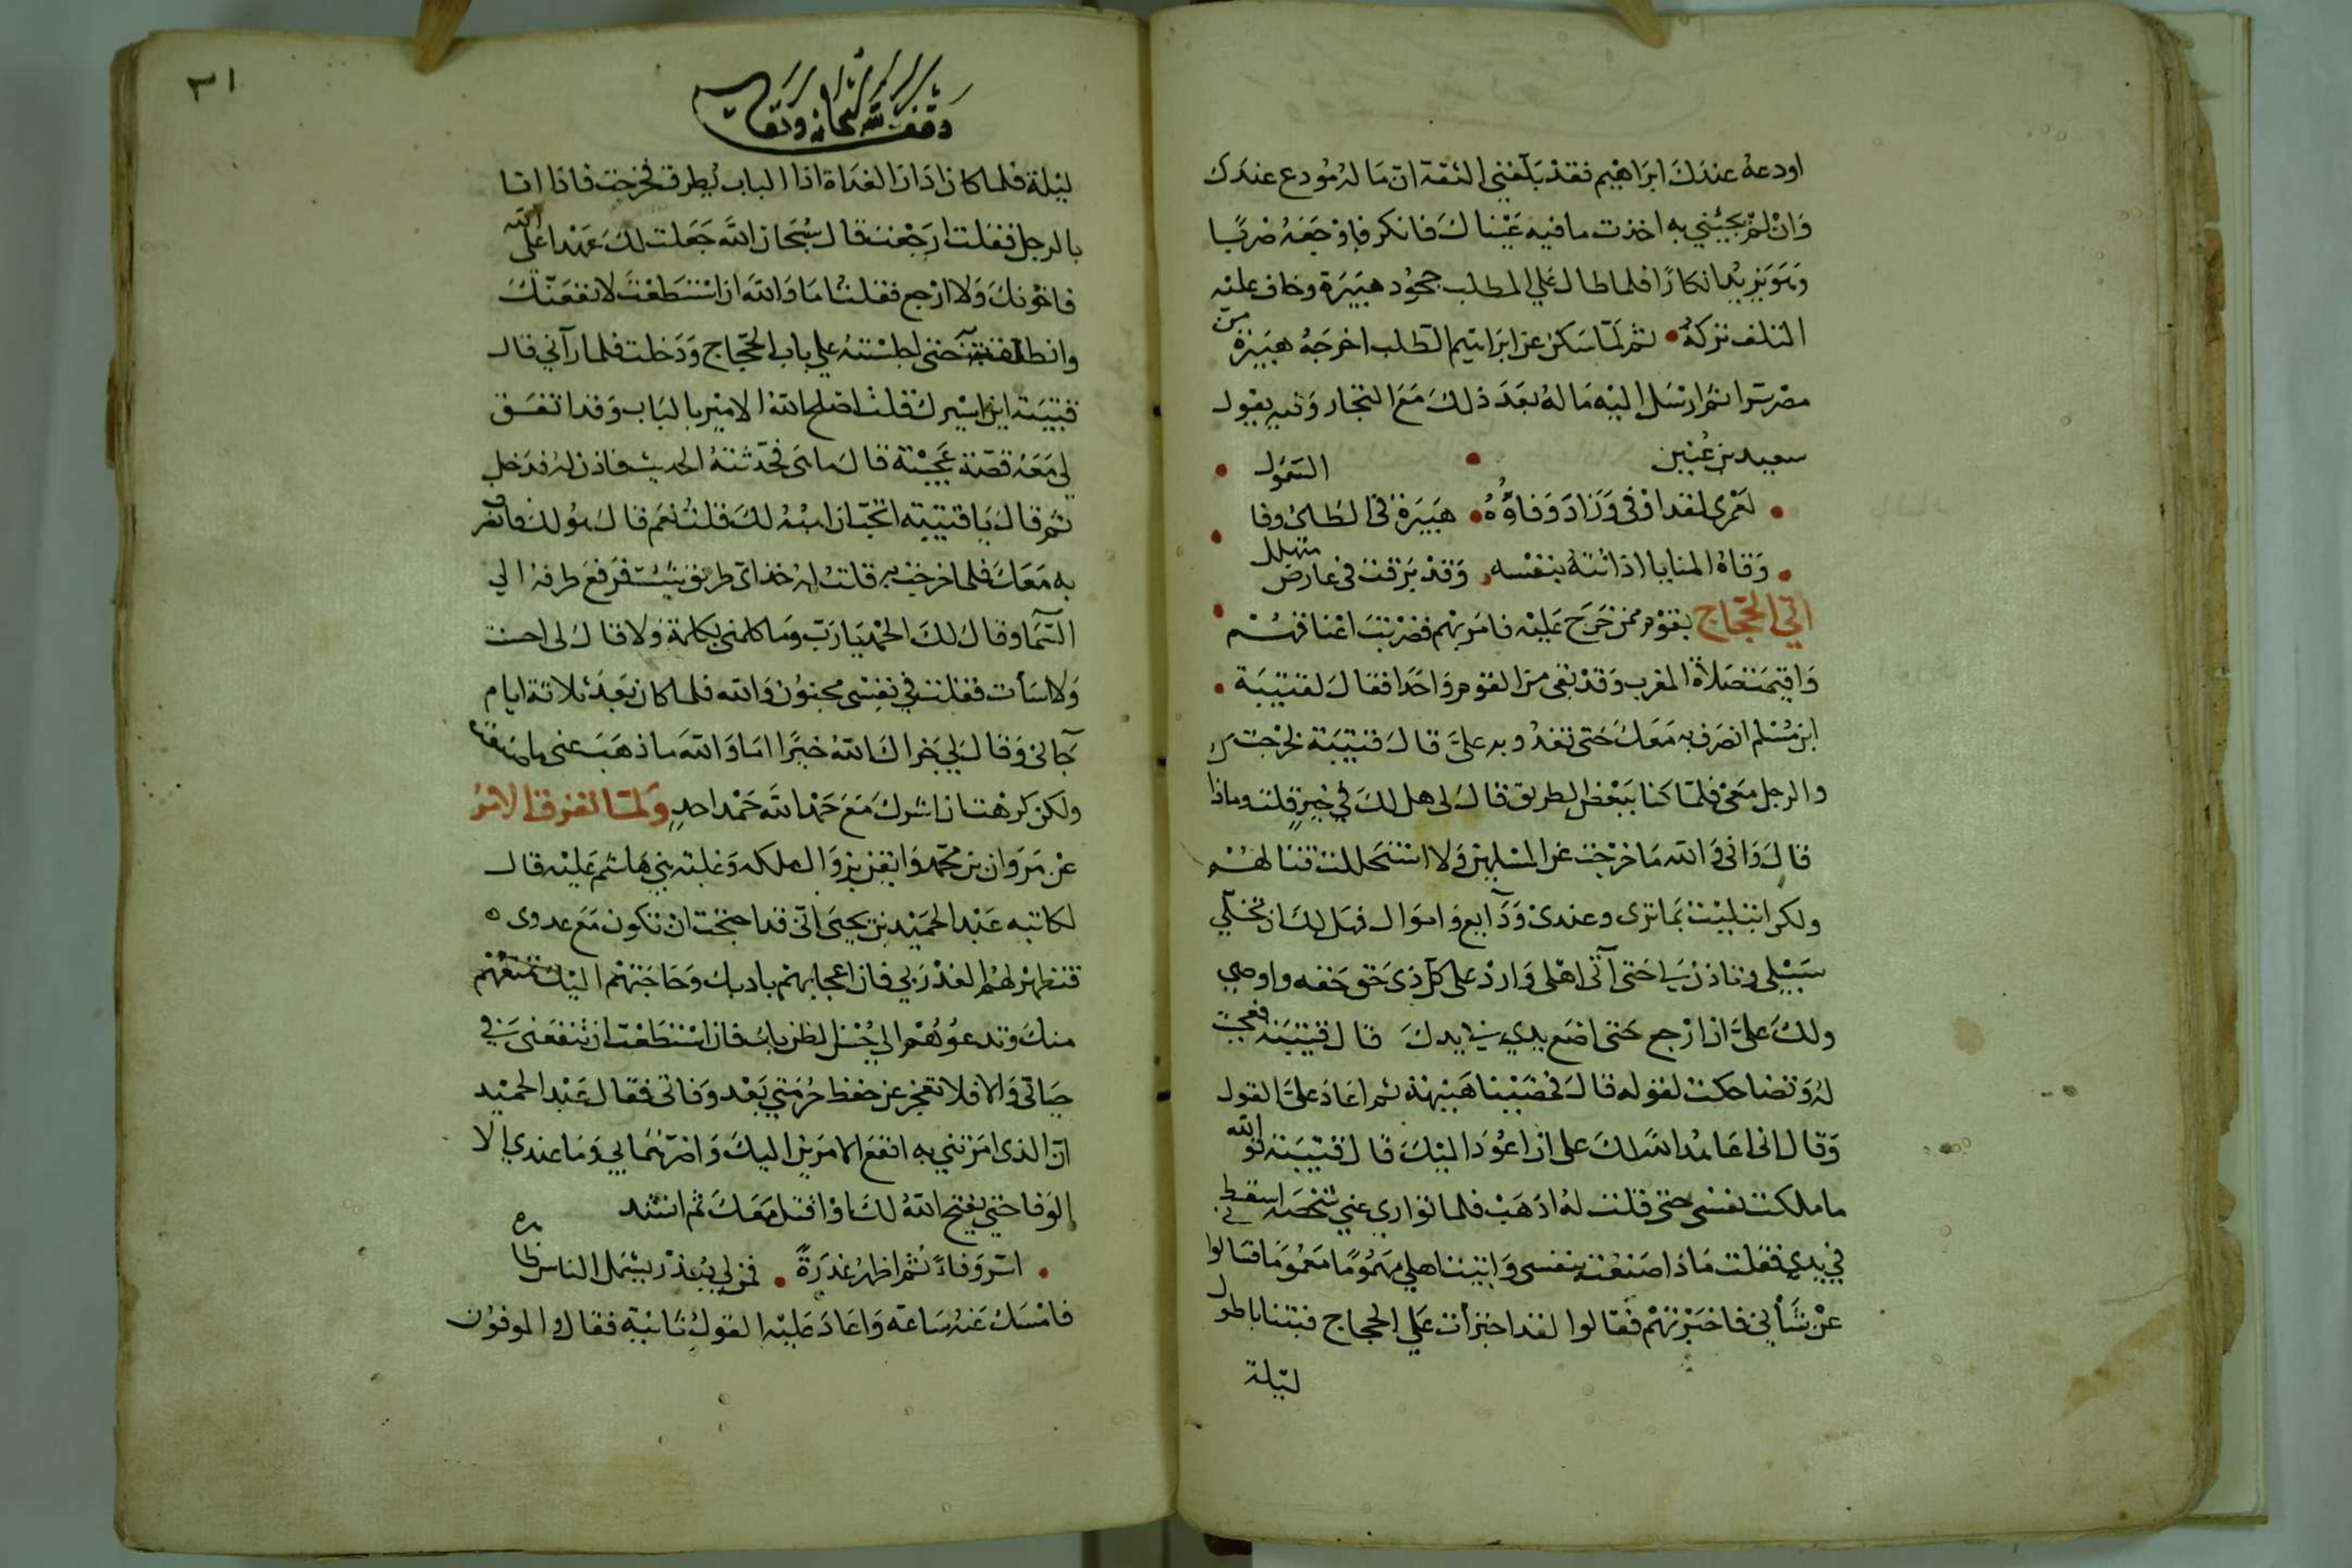 اودعهُ عندَكَ ابرَاهِيم فقدْ بَلغَني الثقة انّ مَالهُ مُودع عندَك
وَانْ لمْ تجئني به اخذت ما فيه عَيْناكَ فانكر فاوْجَعَهُ ضربًا
وهوَ يزيدُ انكارًا فلما طال عَلي المطلب جحُود هبَيرَة وخاف عليْه
التلف تركهُ • ثم لمّا سكن عن ابراهيم الطلب اخرجَهُ هبَيرة من
مصْر سَرا ثم ارْسَل اليْه مَالهُ بعَدَ ذلكَ مَعَ التجار وَفيه يقول
سعيد بن عُنَين • السَمَوْل •
• لعَمْري لقد اوْفى وَزَادَ وَفاؤُهُ • هبَيرَة في الطائي وفا
• وَقاهُ المنايا اذ اتتهُ بنفسه • وَقدْ بَرقت في عارض متهلل
اتي الحجّاج بقوْم ممن خرَجَ عَليْه فامَر بهم فضرْبتَ اعْناقهُم •
وَاقيمَت صَلاة المغرب وَقدْ بَقي من القوم وَاحدًا فقالَ لقتيبَة •
ابن مُسْلم انصَرف به مَعَكَ حَتى تغدُو به عليَّ قالَ قتيْبَة فخرَجت
والرجل مَعَي فلمّا كنا ببَعْض الطريق قالَ لي هل لكَ في خيرٍ قلت وماذا
قالَ وَاني وَالله مَا خرَجْت عَن المسْلمين وَلا اسْتحللت قتالهُم
ولكن ابتليْت بمَا ترَى وعندي وَدَايع وَاموَال فهَل لكَ ان تخلّي
سَبيْلي وتاذن لي حَتى آتي اهْلي وَاردْ على كلّ ذي حَق حَقه واوصي
ولكَ عليَّ ان ارْجع حَتى اضع يدي في يدكَ قالَ قتيْبَة فعجبت
لهُ وَتضاحكت لقوله قالَ فمضيْنا هنيْهَة ثم اعَادَ عليَّ القول
وَقال اني اعَاهدُ الله لكَ على ان اعُودَ اليْكَ قالَ قتيْبَة فو الله
ما ملكت نفسي حَتى قلت لهُ اذهَبْ فلما توارى عني شخصه اسقط
في يدي فقلت مَاذا صَنعْت بنفسي وَاتيت اهلي مَهمُومًا مَغمُومًا فسَالوا
عَنْ شأني فاخبَرْتهُم فقالوا لقد اجترأت عَلي الحجاج فبتنا باطول
ليْلة
٣١
وقف لله سبحانه وتعالى
ليْلة فلما كان اذان الغدَاة اذا الباب يُطرق فخرَجت فاذا انا
بالرجل فقلت ارَجَعْت قالَ سُبْحان الله جَعَلت لكَ عَهْدا على الله
فاخونكَ وَلا ارْجع فقلت امَا وَالله ان اسْتطعْت لانفعَنّكَ
وانطلقت به حَتى اجلسْتهُ عَلي باب الحجّاج وَدَخلت فلما رآني قال
قتيْبَة اين اسيْرك قلت اصْلح الله الامير بالبَاب وَقد اتفق
لي مَعَه قصّة عَجيْبَة قالَ ماهيَ فحدّثتهُ الحديث فاذن لهُ فدَخل
ثم قالَ يَا قتيْبَة اتحبّ ان اهبُهُ لكَ قلتُ نعَم قالَ هوُ لكَ فانصرف
به مَعَكَ فلما خرجت به قلت لهُ خذ اي طريق شئت فرَفعَ طرفهُ الي
السَّمَا وقالَ لكَ الحمْد يَا رَبّ وَمَا كلمني بكلمَة وَلا قالَ لي احسنت
وَلا اسَأت فقلت في نفسي مجنوُن وَالله فلما كان بَعَدَ ثلاثة ايام
جَآني وَقالَ لي جَزاكَ الله خيرًا امَا وَالله ما ذهَبَ عني ما صنعت
ولكن كرهْت ان اشرك مَعَ حَمْد الله حَمْد احدٍ وَلمّا انفرق الامرُ
عَنْ مَرَوَان بن محمّد وَايقن بزوَال ملكه وَغلبَة بني هَاشم عَليْه قال
لكاتبه عَبْد الحميْد بن يحيَى اني قد احتجْت انْ تكون مَعَ عدوي ه
فتظهرُ لهُم الغدْرَ بي فان اعجابهمْ بادبك وَحَاجَتهُم اليْك تمنعُهم
منكَ وتدعوُهُم الي حُسْن الظن بك فان اسْتطعْت ان تنفعَني في
حيَاتي وَالا فلا تعجز عن حفظ حُرمَتي بَعْد وَفاتي فقال عَبْد الحميْد
انّ الذي امَرْتني به انفعَ الامرَين اليكَ وَاضرّهُمَا بي وَمَا عندي الا
الوَفا حتي يفتح الله لكَ اوْ اقتل مَعَكَ ثم انشد
• اسّر وَفاءً ثم اظهرُ غدرَةً • فمن لي بعُذْر يشمل الناس ظاهره
فامْسَكَ عَنهُ سَاعَة وَاعَادَ عَليْه القولَ ثانيَة فقال والموفوُن